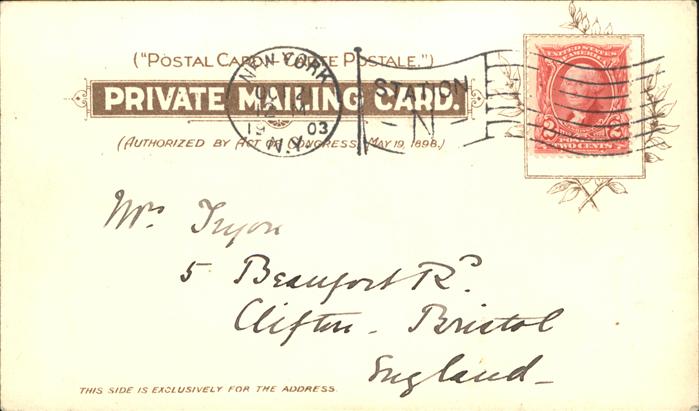 ("POSTAL CARD – CARTE POSTALE.")
PRIVATE MAILING CARD.
(AUTHORIZED BY ACT OF CONGRESS, MAY 19, 1898.)
NEW YORK
OCT 2
19 03
N.Y.
STATION
N
UNITED STATES
OF AMERICA
2 2
TWO CENTS
Mrs Tryon
5 Beaufort Rd.
Clifton - Bristol
England -
THIS SIDE IS EXCLUSIVELY FOR THE ADDRESS.